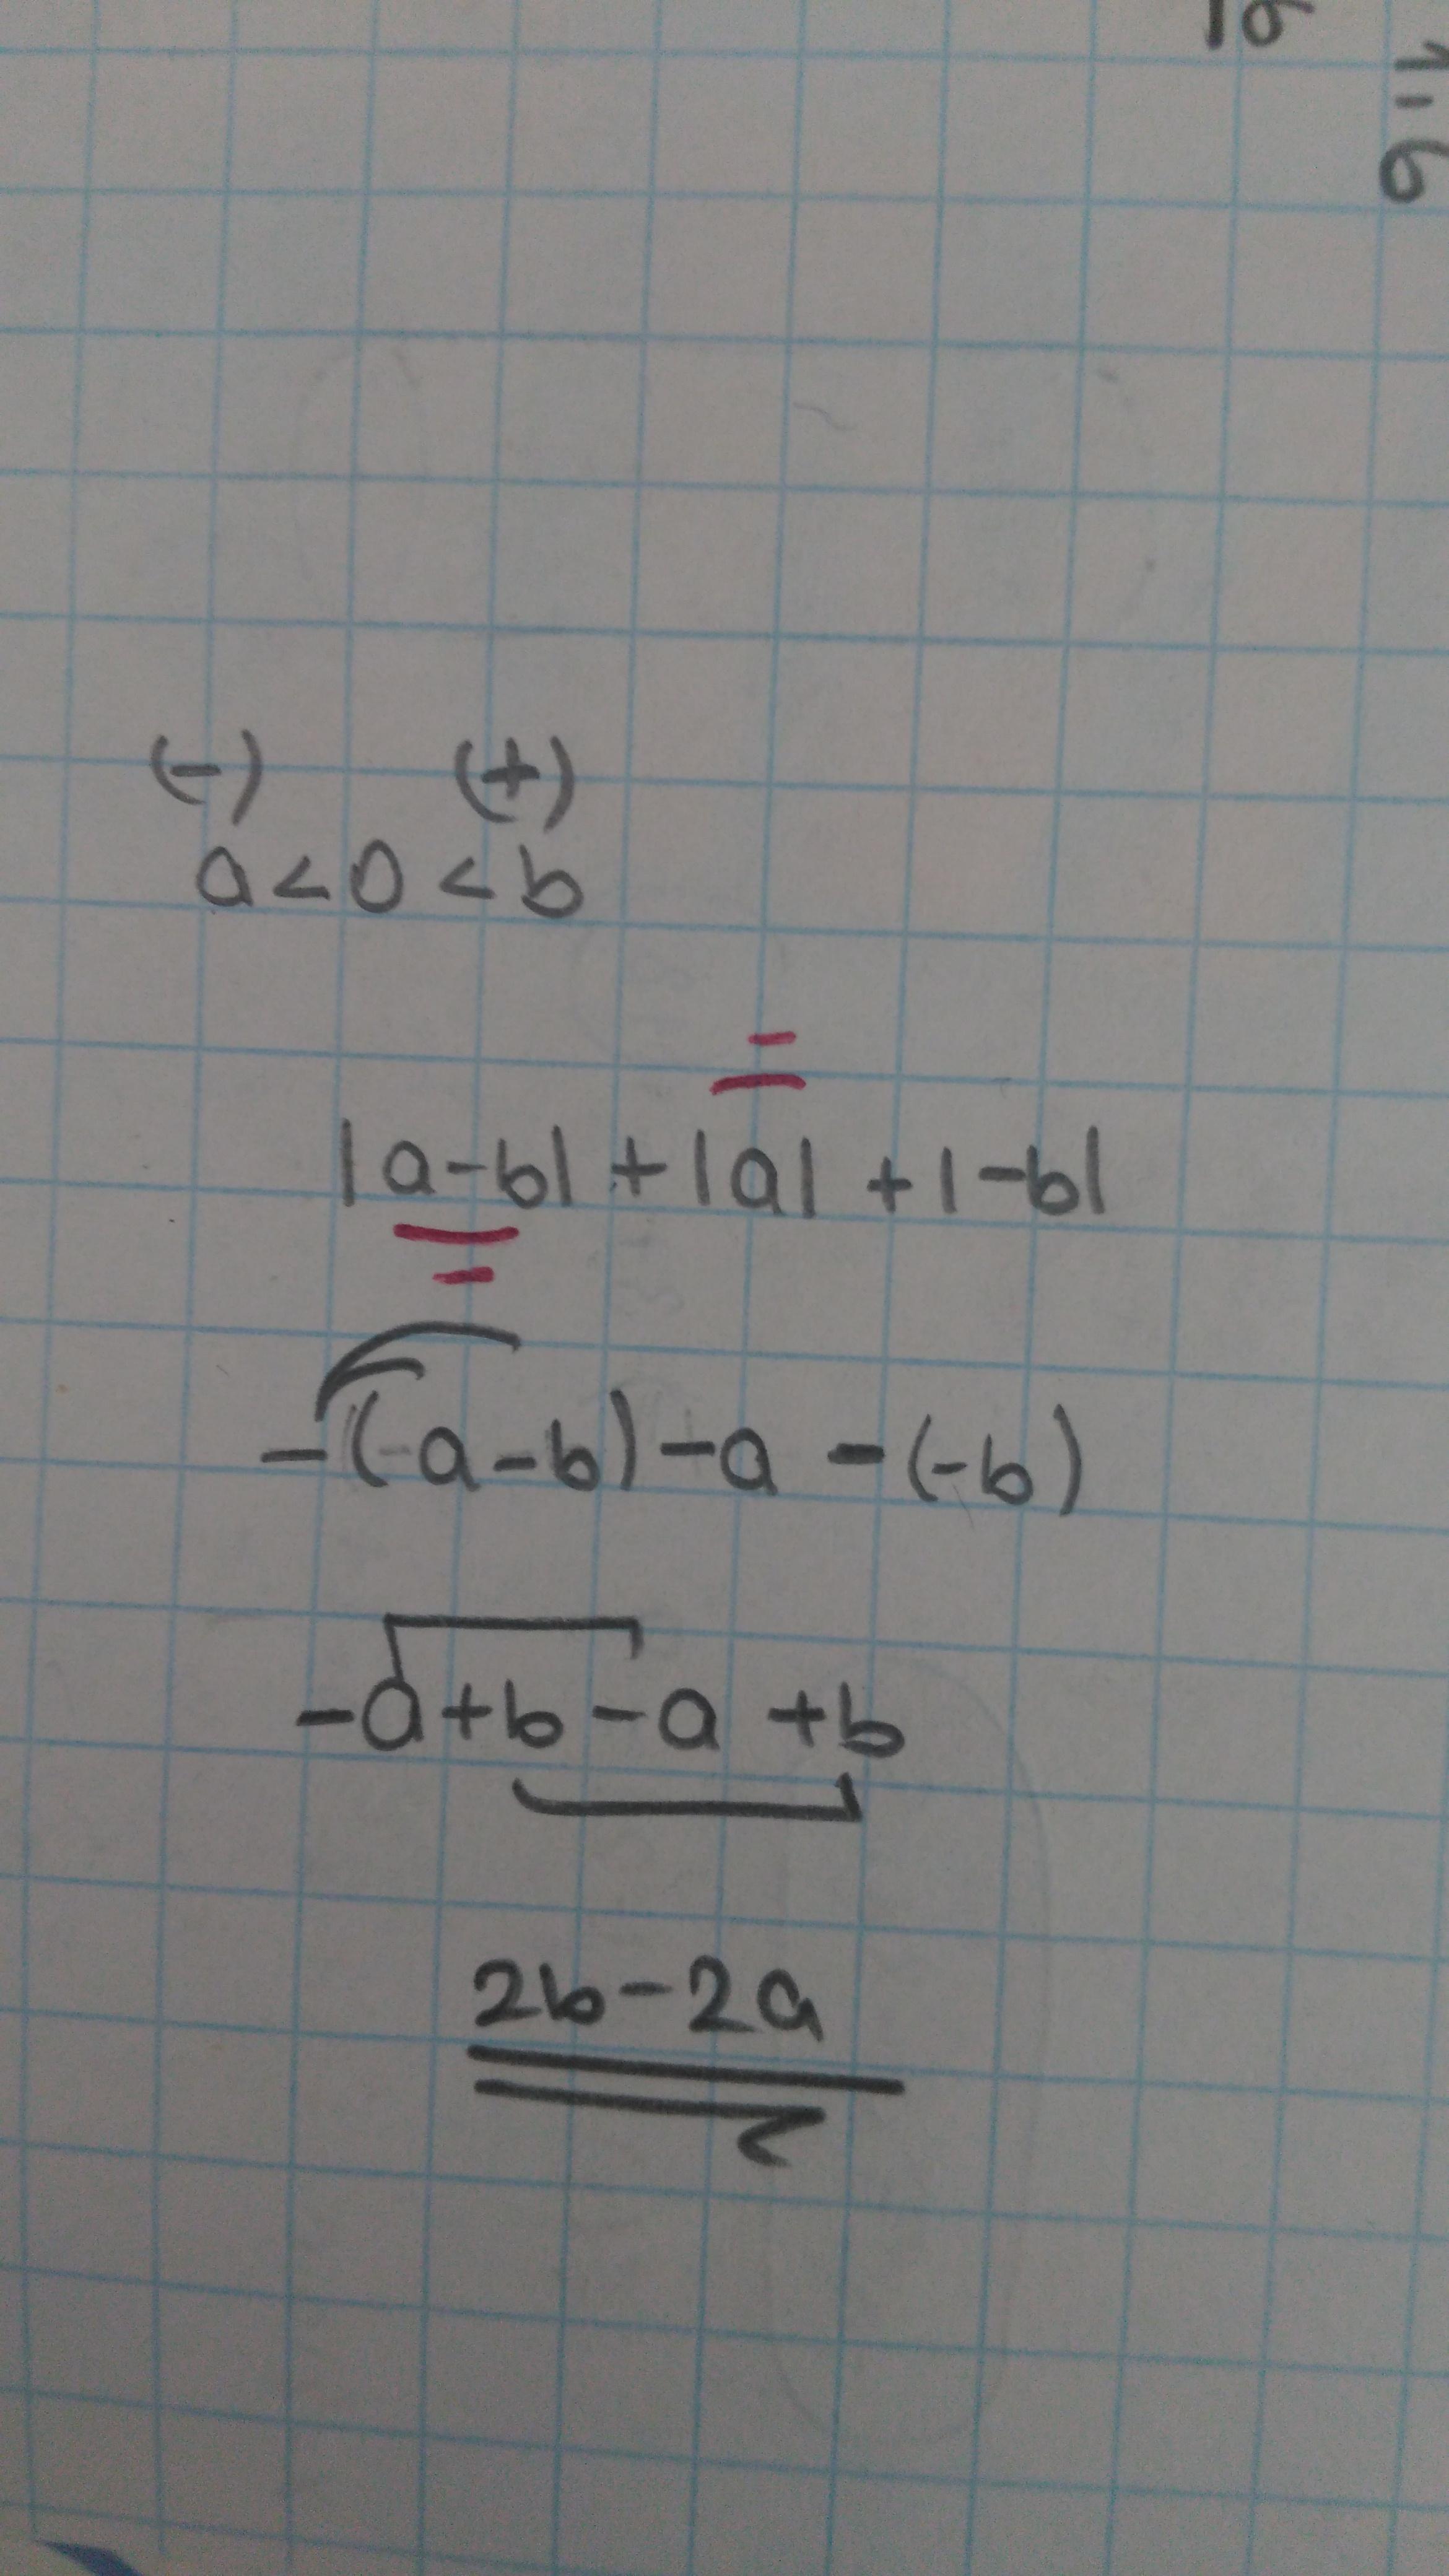 (-) (+)
a < 0 < b
|a-b| + |a| + |-b|
-(a-b) -a -(-b)
-a+b-a +b
2b-2a